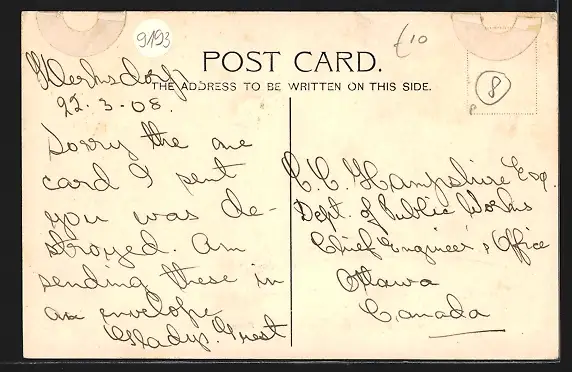 9193
£10
POST CARD.
THE ADDRESS TO BE WRITTEN ON THIS SIDE.
8
22.3.08.
Sorry the one
card I sent
you was de-
stroyed. Am
sending these in
an envelope
Gladys.
C.C. Hampshire Esq.
Dept. of Public Works
Chief Engineer's Office
Ottawa
Canada